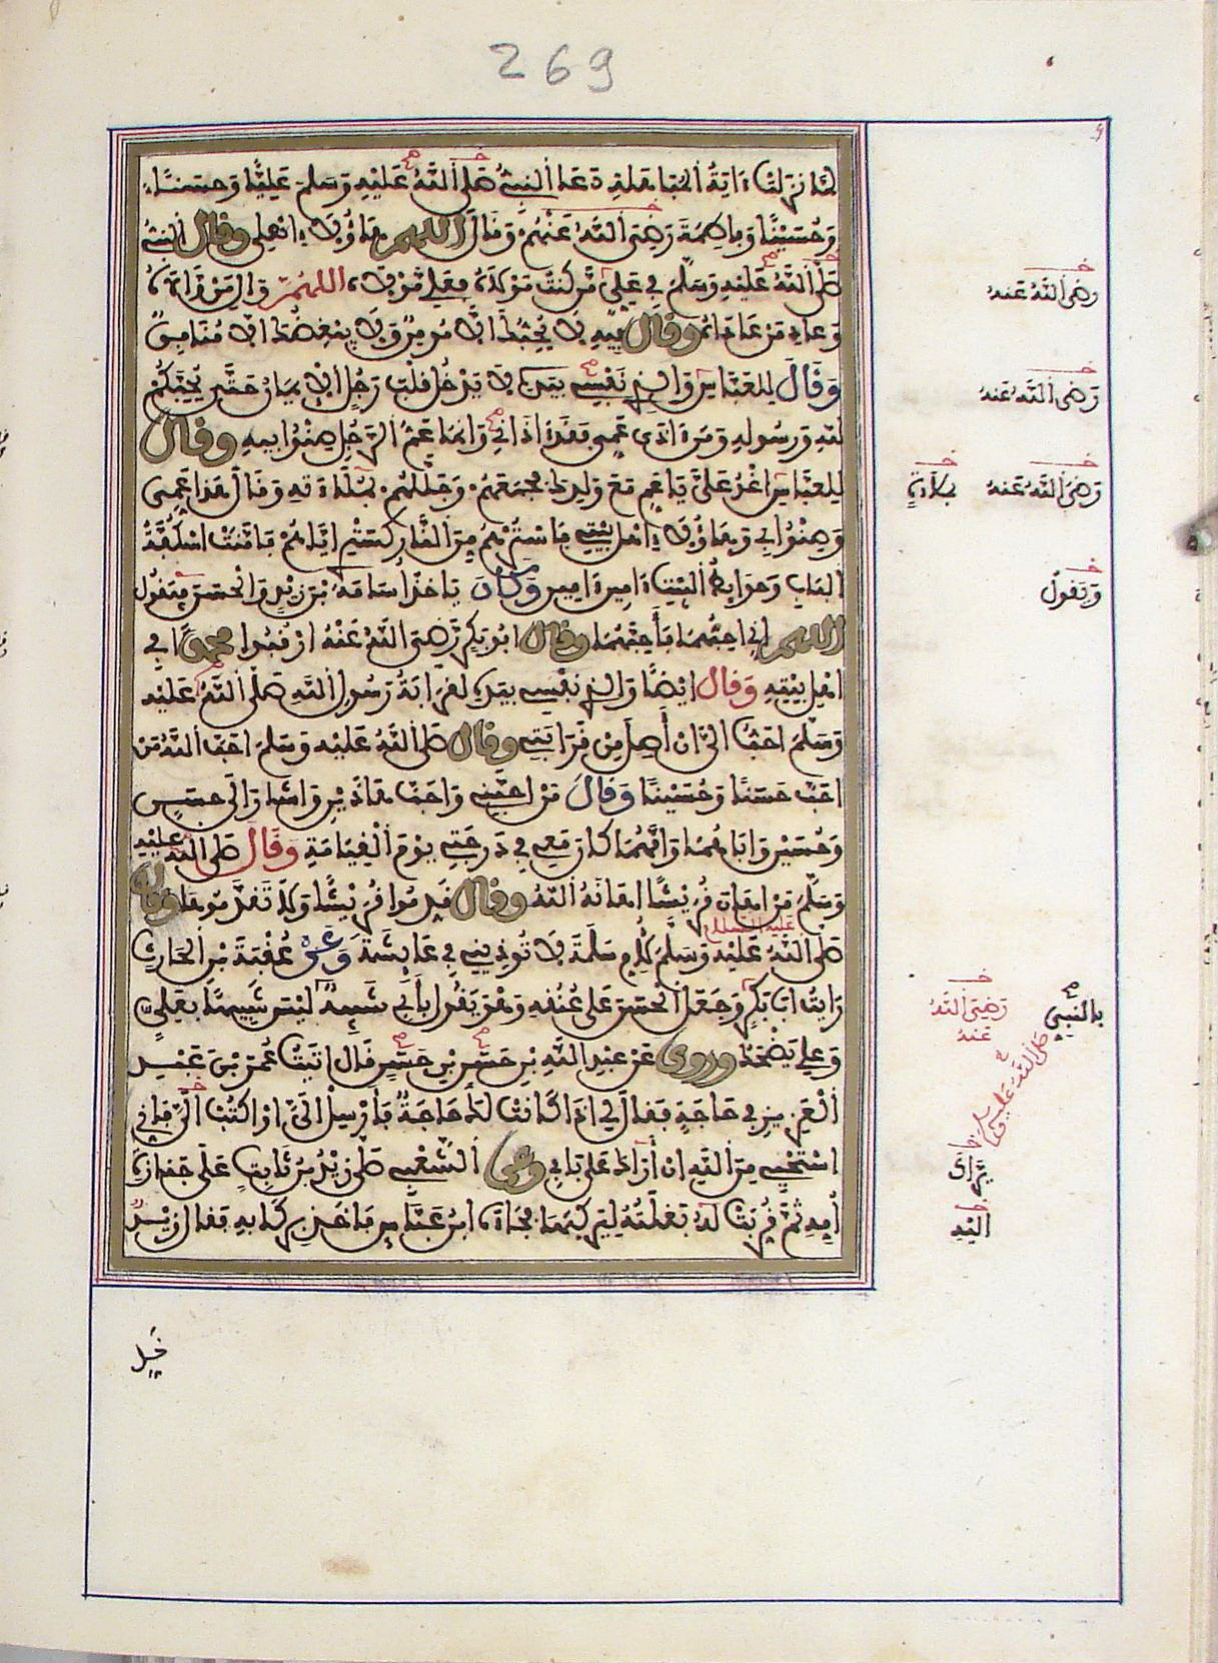 269
لمّا نزلت ءاية المباهلة دعا النبي صلى الله عليه وسلم عليّا وحسنا
وحسينا وفاطمة رضي الله عنهم وقال اللهم هاؤلاء اهلي وقال النبي
صلى الله عليه وسلم في علي من كنت مولاه فعلي مولاه اللهم وال من والاه
وعاد من عاداه وقال فيه لا يحبك الا مومن ولا يبغضك الا منافق
وقال للعباس والذي نفسي بيده لا يدخل قلب رجل الايمان حتى يحبكم
لله ورسوله ومن ءاذى عمي فقد ءاذاني وانما عم الرجل صنو ابيه وقال
للعباس اغد علي يا عم مع ولدك فجمعهم وجللهم بملاءته وقال هذا عمي
وصنو ابي وهاؤلاء اهل بيتي فاسترهم من النار كستري اياهم فامنت اسكفة
الباب وحوايط البيت ءامين ءامين وكان ياخذ اسامة بن زيد والحسن فيقول
اللهم اني احبهما فاحبهما وقال ابو بكر رضي الله عنه ارقبوا محمدا في
اهل بيته وقال ايضا والذي نفسي بيده لقرابة رسول الله صلى الله عليه
وسلم احب الي ان أصل من قرابتي وقال صلى الله عليه وسلم احب الله من
احب حسنا وحسينا وقال من احبني واحب هاذين واشار الى حسن
وحسين واباهما وامهما كان معي في درجتي يوم القيامة وقال صلى الله عليه
وسلم من اهان قريشا اهانه الله وقال قدموا قريشا ولا تقدموها وقال
عليه السلام
صلى الله عليه وسلم لام سلمة لا توذيني في عايشة وعن عقبة بن الحارث
رايت ابا بكر وجعل الحسن على عنقه وهو يقول بأبي شبيه ليس شبيها بعلي
وعلي يضحك وروي عن عبد الله بن حسن بن حسين قال اتيت عمر بن عبد
العزيز في حاجة فقال لي اذا كانت لك حاجة فأرسل الي او اكتب الي فاني
استحيي من الله ان أراك على بابي وعن الشعبي صلى زيد بن ثابت على جنازة
أمه ثم قربت له بغلته ليركبها فجاء ابن عباس فاخذ بركابه فقال زيد
رضي الله عنه
رضي الله عنه
رضي الله عنه
ويقول
بالنبي
صلى الله عليه وسلم
رضي الله
عنه
يراك
اليه
خل